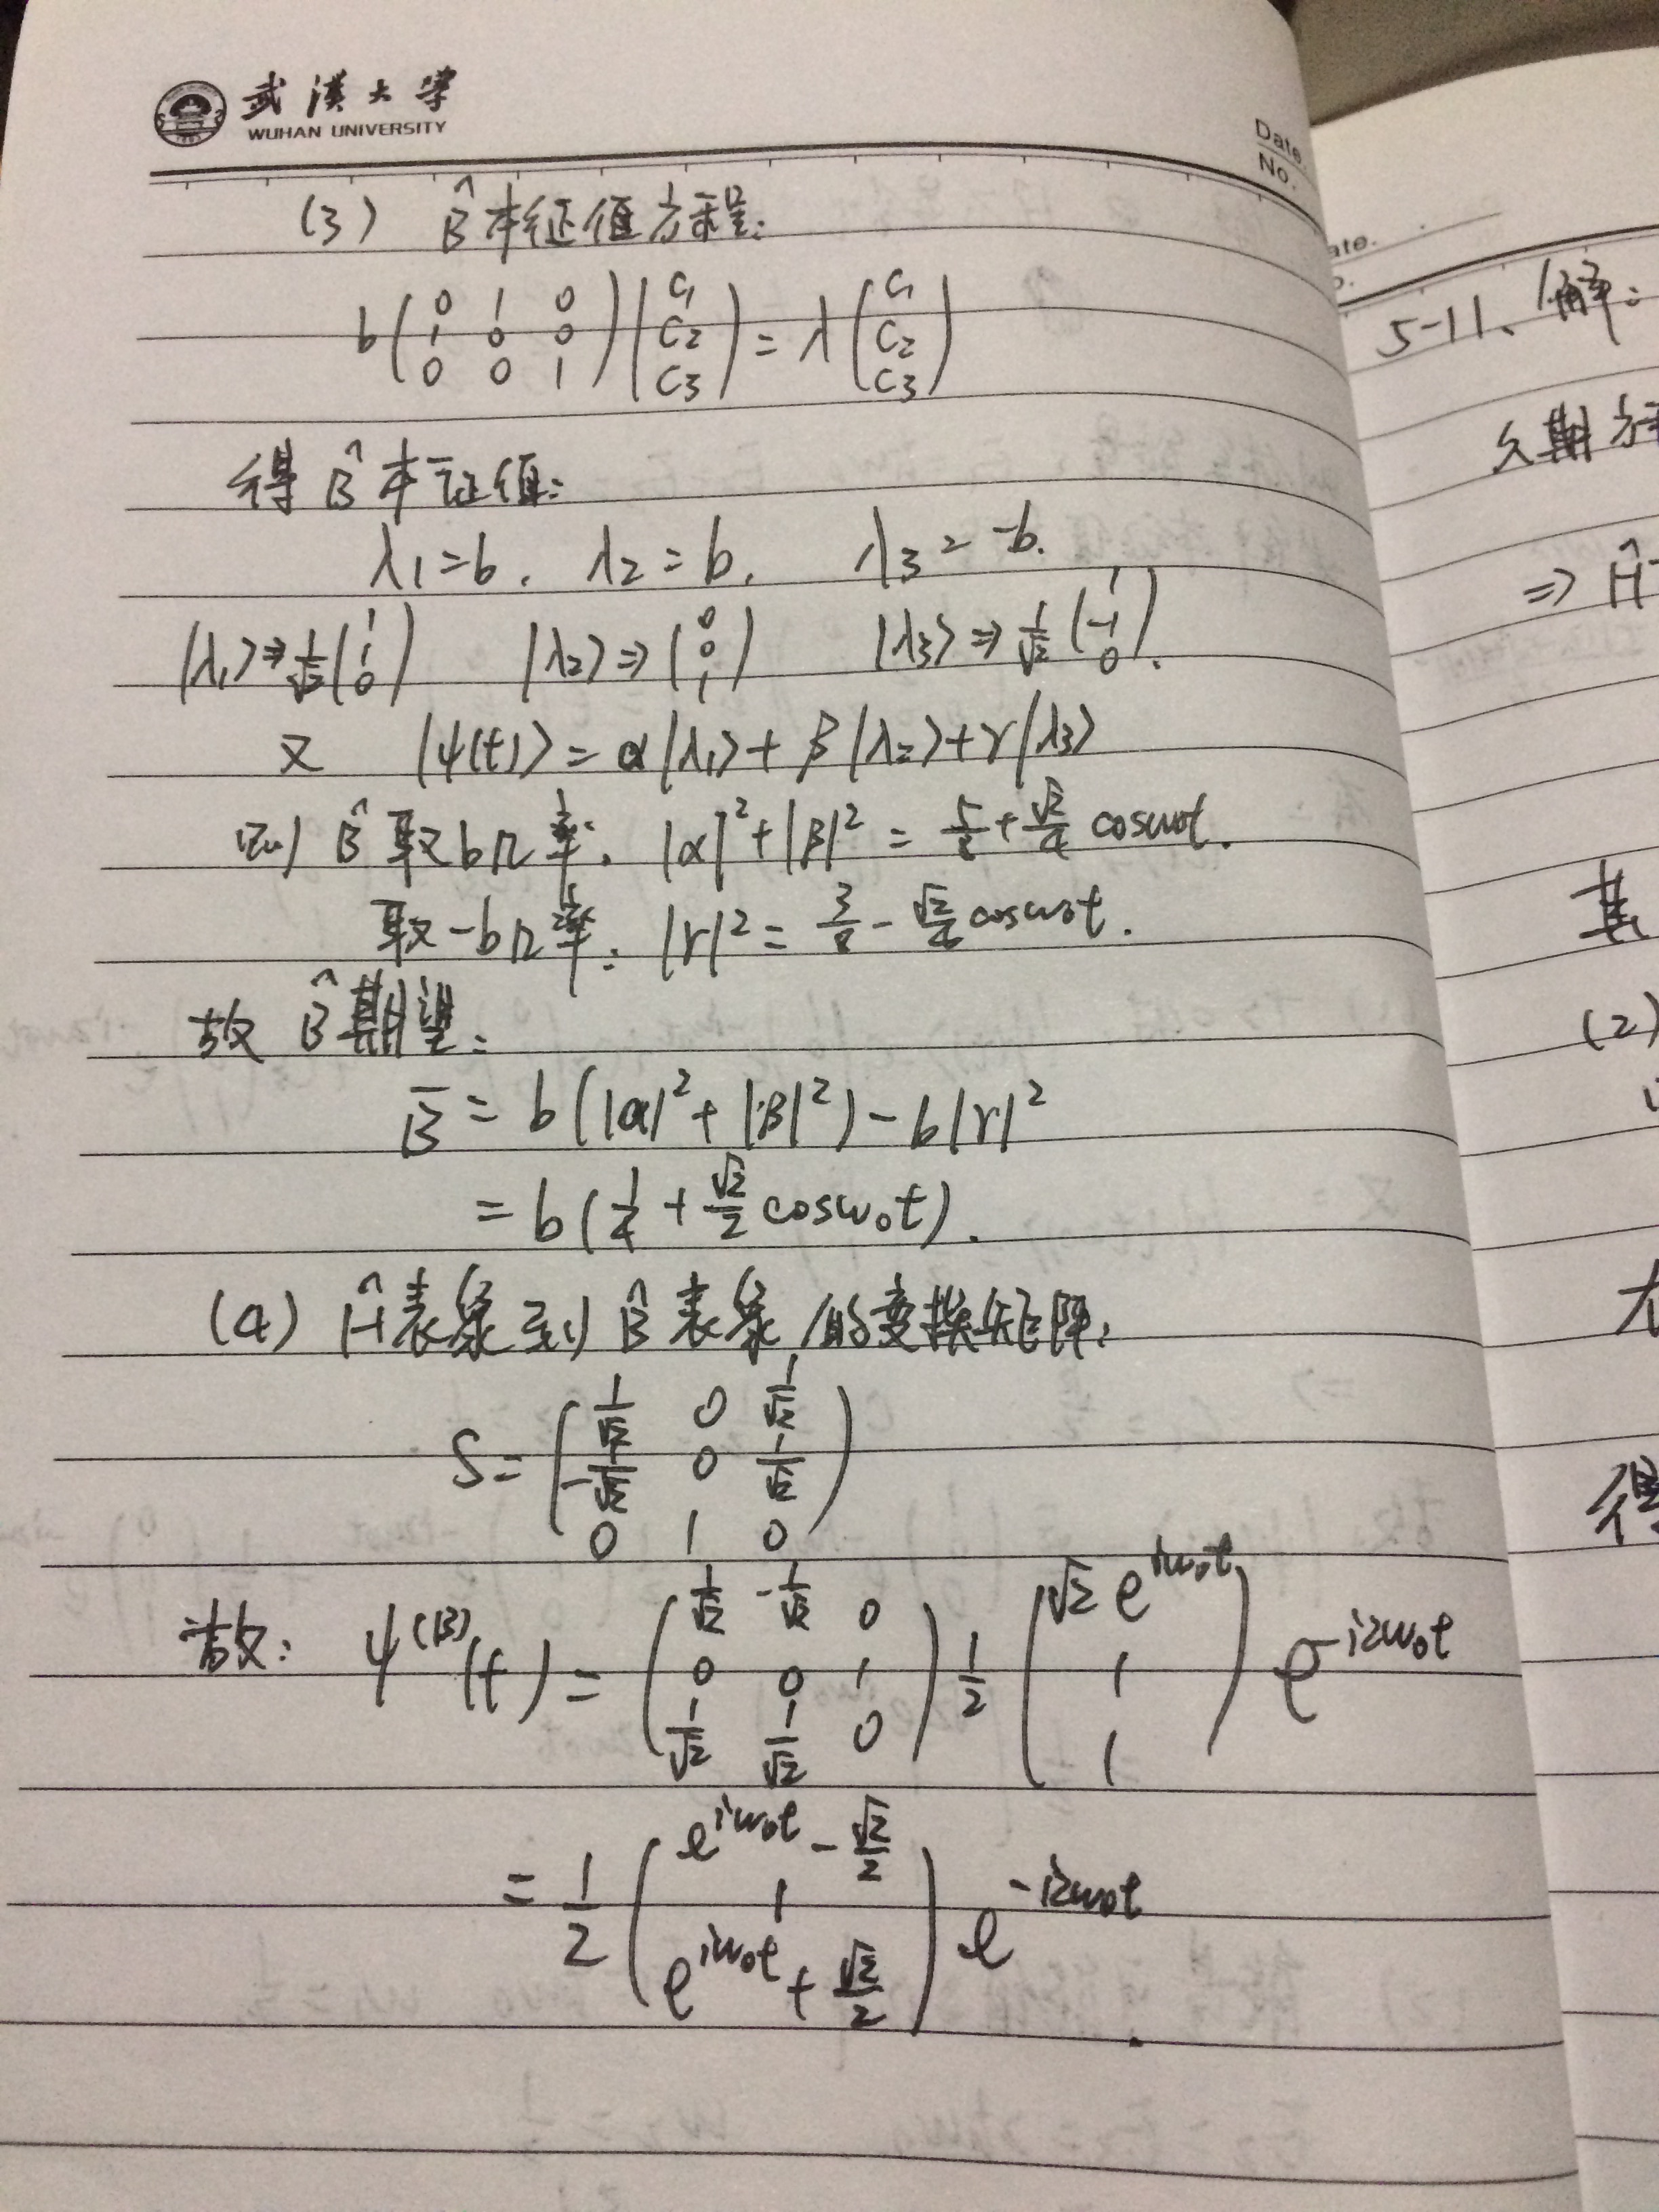 武漢大學
WUHAN UNIVERSITY
Date.
No.
(3) B̂本征值方程:
b(0 1 0; 1 0 0; 0 0 1)(C₁; C₂; C₃) = λ(C₁; C₂; C₃)
得 B̂本征值:
λ₁=b. λ₂=b. λ₃=-b.
|λ₁>⇒1/√2(1; 1; 0) |λ₂>⇒(0; 0; 1) |λ₃>⇒1/√2(1; -1; 0).
又 |ψ(t)>=α|λ₁>+β|λ₂>+γ|λ₃>
则 B̂取b几率. |α|²+|β|² = 5/8+√2/4 cosω₀t.
取-b几率: |γ|² = 3/8-√2/4 cosω₀t.
故 B̂期望:
B̄ = b(|α|²+|β|²)-b|γ|²
= b(1/4+√2/2 cosω₀t).
(4) Ĥ表象到B̂表象的变换矩阵:
S=(1/√2 0 1/√2; -1/√2 0 1/√2; 0 1 0)
故: ψ⁽ᴮ⁾(t) = (1/√2 -1/√2 0; 0 0 1; 1/√2 1/√2 0) 1/2 (√2 e^{iω₀t}; 1; 1) e^{-i2ω₀t}
= 1/2 (e^{iω₀t}-√2/2; 1; e^{iω₀t}+√2/2) e^{-i2ω₀t}.
ate.
5-11、解:
久期方
⇒ Ĥ
其
(2)
得